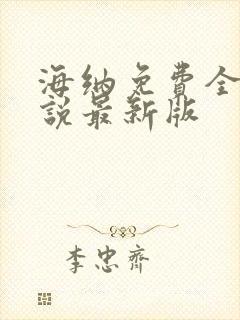 海纳免費全
說最新版
李忠齊